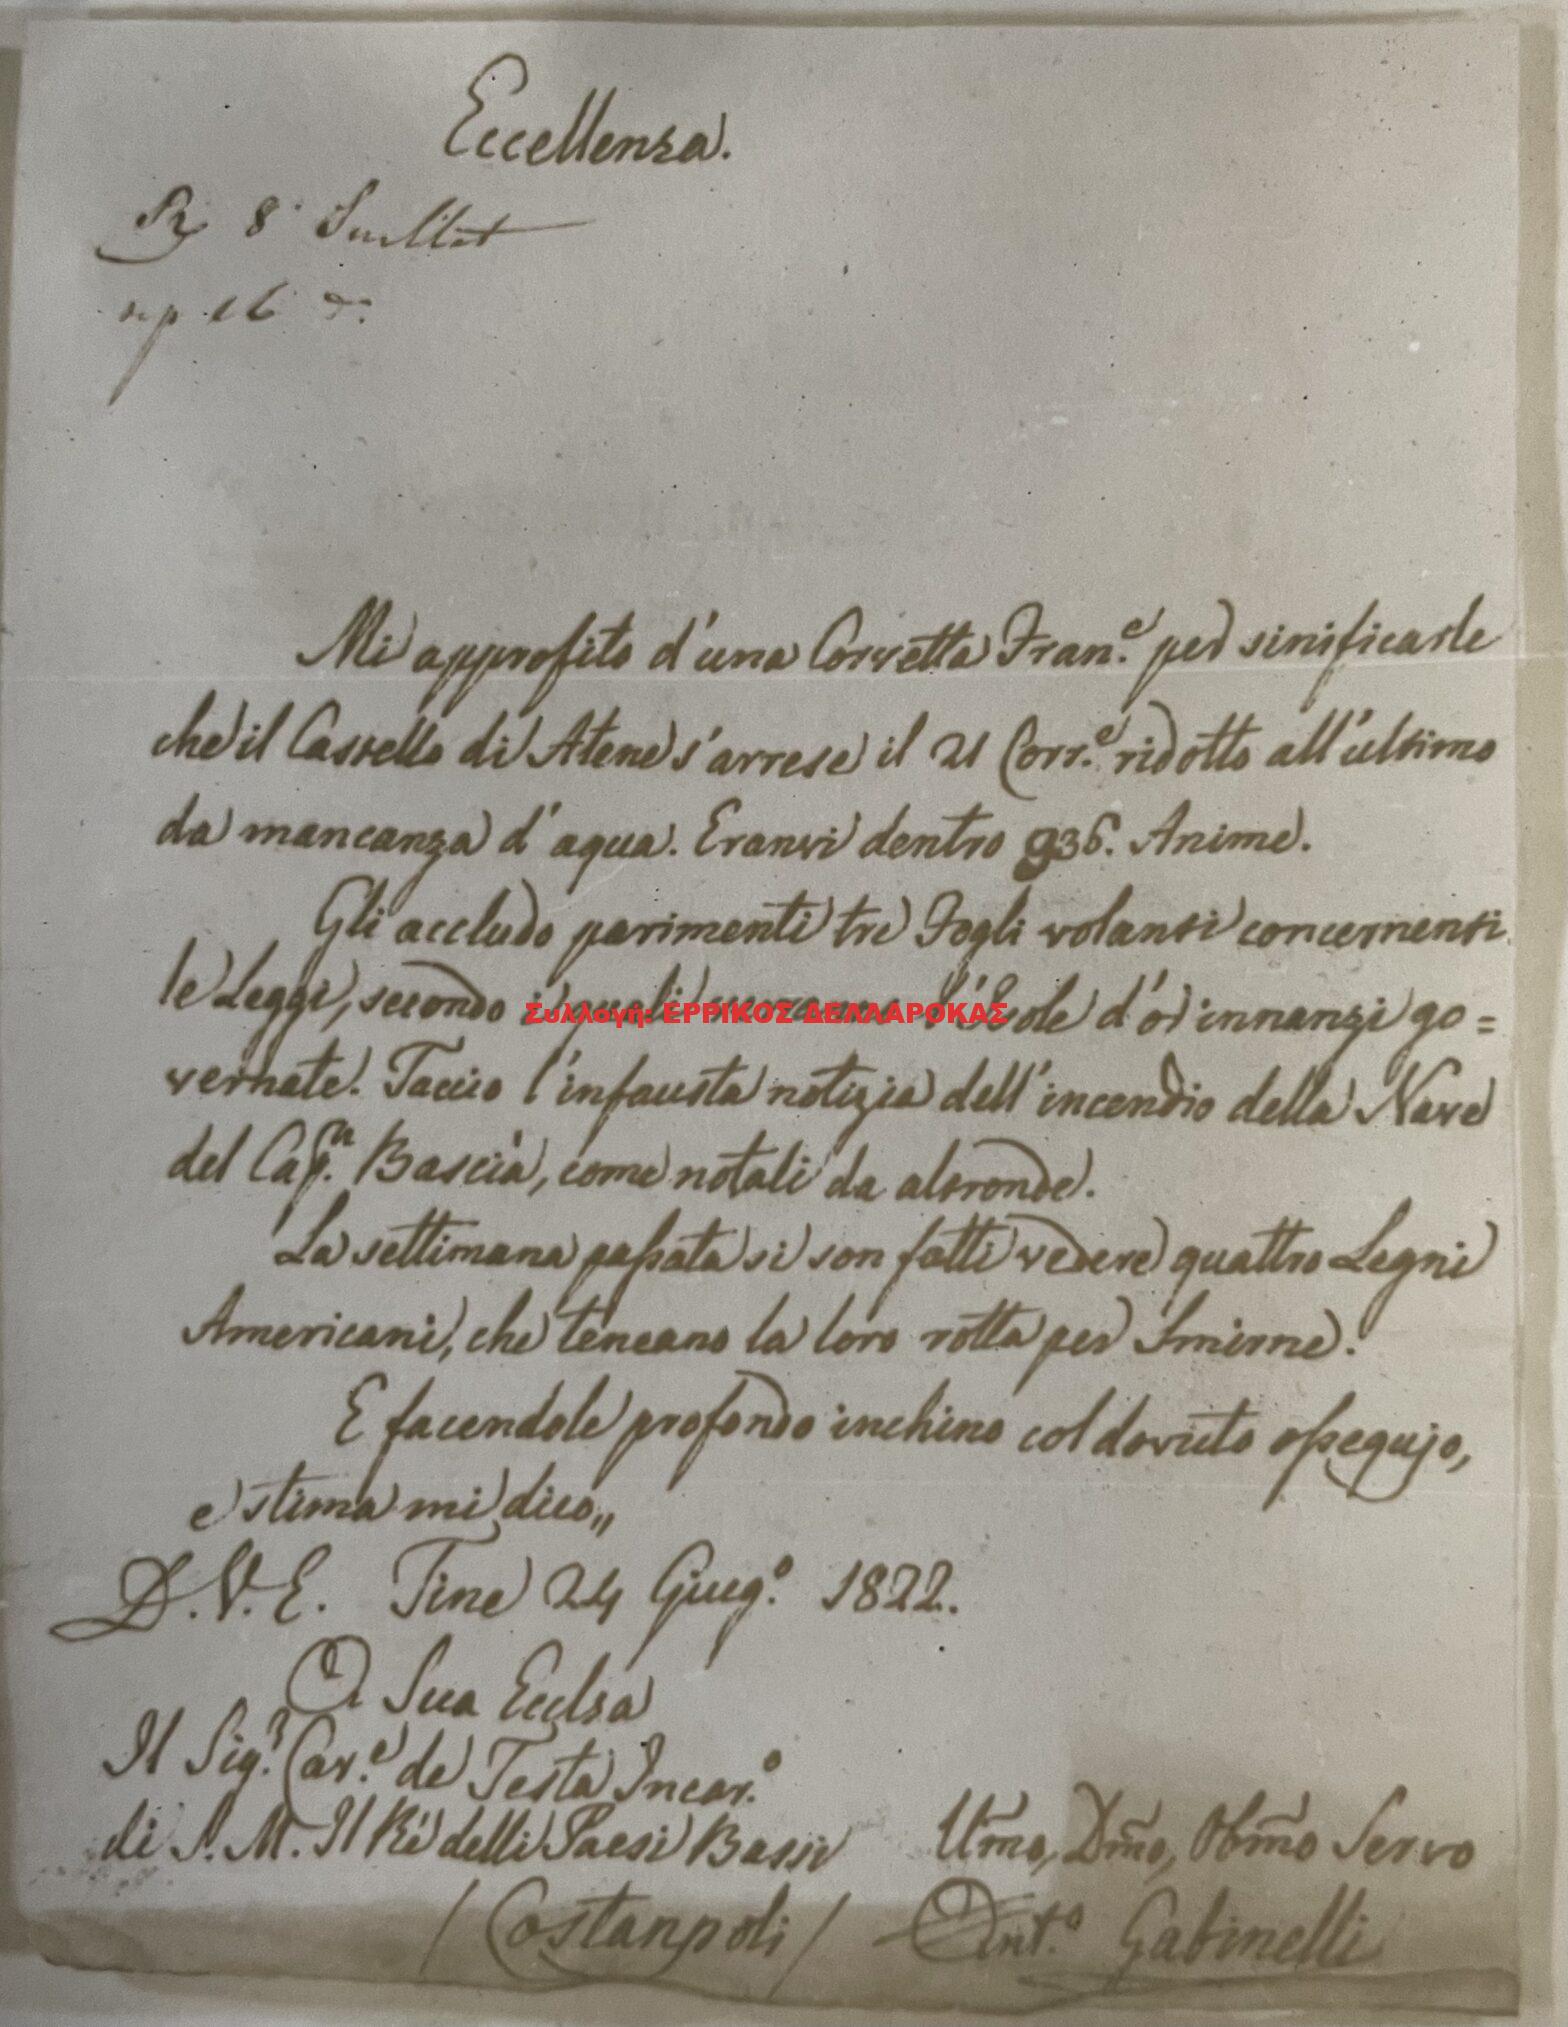 Eccellenza.
R 8 Juillet
rep 16 do:
Mi approfito d'una Corvetta Fran.e per sinificarle
che il Castello di Atene s'arrese il 21 Corr.e ridotto all'ultimo
da mancanza d'aqua. Eranvi dentro 936. Anime.
Gli accludo parimenti tre Fogli volanti concernenti
le Leggi, secondo i quali l'Isole d'or innanzi go=
vernate. Taccio l'infausta notizia dell'incendio della Nave
del Cap.n Bascià, come notali da altronde.
La settimana passata si son fatti vedere quattro Legni
Americani, che teneano la loro rotta per Smirne.
E facendole profondo inchino col dovuto ossequjo,
e stima mi dico,,
D. V. E. Tine 24 Giug.o 1822.
A Sua Ecclza
Il Sig.r Cav.e de Testa Incar.o
di S. M. Il Rè delli Paesi Bassi
Umo, Dmo, Obmo Servo
/ Costanpoli /
Ant.o Gabinelli
Συλλογή: ΕΡΡΙΚΟΣ ΔΕΛΛΑΡΟΚΑΣ